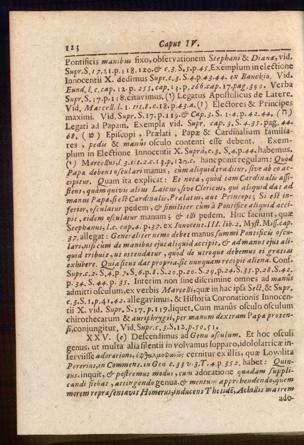 123 Caput IV.
Pontificis manibus fixo, observationem Stephani & Dianæ, vid.
Supr. S. 17. 21. p. 118. 120. & c. 3. S. 5. p. 45. Exemplum in electione
Innocentii X. dedimus Supr. c. 3. S. 4. p. 43. 44. ex Banckio, Vid.
Eund. l. c. cap. 12. p. 255. cap. 13. p. 266. cap. 17. pag. 350. Verba
Supr. S. 17. p. 118. citavimus, Legatus Apostolicus de Latere.
Vid. Marcell. l. 1. c. 18. p. 43. a. Electores & Principes
maximi. Vid. Supr. S. 17. p. 119. & Cap. 3. S. 14. p. 42. 44.
Legati ad Papam, Exempla vid. Supr. cap. 3. S. 4. 35. pag. 44.
48. Episcopi, Prælati, Papæ & Cardinalium familia-
res, pedu & manus osculo contenti esse debent. Exem-
plum in Electione Innocentii X. Supra, c. 3. S. 4. p. 44. habemus,
Marcellus, hanc ponit regulam: Quod
Papa debens osculari manus, cum aliquid traditur, sive ab eo ac-
cipitur. Quam ita explicat: Et nota, quod tam Cardinalis assi-
stens, quàm quivis alius Laicus, sive Clericus, qui aliquid da t ad
manus Papæ, si est Cardinalis, Prælatus, aut Princeps; Si est in-
ferior, osculatur pedem, & similiter cùm à Pontifice aliquid acci-
pit, eidem osculatur manum; & illi pedem. Hoc faciunt, quæ
Stephanus, l. c. cap. 4. p. 37. ex Innocent. III. lib. 2. Myst. Miss. cap.
37. allegat: Generaliter nemo debet manus summi Pontificis oscu-
lari, nisi cum de manibus ejus aliquid accipit, & ad manus ejus ali-
quid tribuit, ut ostendatur, quod de utroque debemus ei gratias
exhibere. Qui a sicut dat propria, sic nunquam recipit aliena. Conf.
Supr. c. 2. S. 4. p. 7. S. 6. p. 8. S. 20. p. 20. S. 29. p. 24. S. 35. p. 28. S. 42.
p. 34. S. 44. p. 35. Interim non sine discrimine omnes ad manûs
admitti osculum, ex verbis Marcelli, quæ in hac ipsa Sect. & Supr.
c. 3. S. 1. p. 41. 42. allegavimus, & Historia Coronationis Innocen-
tii X. vid. Supr. S. 17. p. 119. liquet, Cum manûs osculo osculum
chirothecarum & auriphrygii, per manum dextram Papæ proten-
si, conjungitur, Vid. Supr. c. 3. S. 12. p. 50. 51.
XXV. (e) Descendimus ad Genu osculum. Et hoc osculi
genus, ut multa alia silentii in volvamus supparo, idololatricæ in-
servisse adorationi, cernitur ex illis, quæ Loyolita
Pererius in Comment. in Gen. c. 43. v. 3. T. 4. p. 352. habet: Quin-
tus, inquit, & postremus modus, cum adoratione quadam suppli-
candi fiebat, attingendo genua, & mentum apprehendendo, quem
morem repræsentavit Homerus, inducens Thetidē, Achillis matrem
ado-